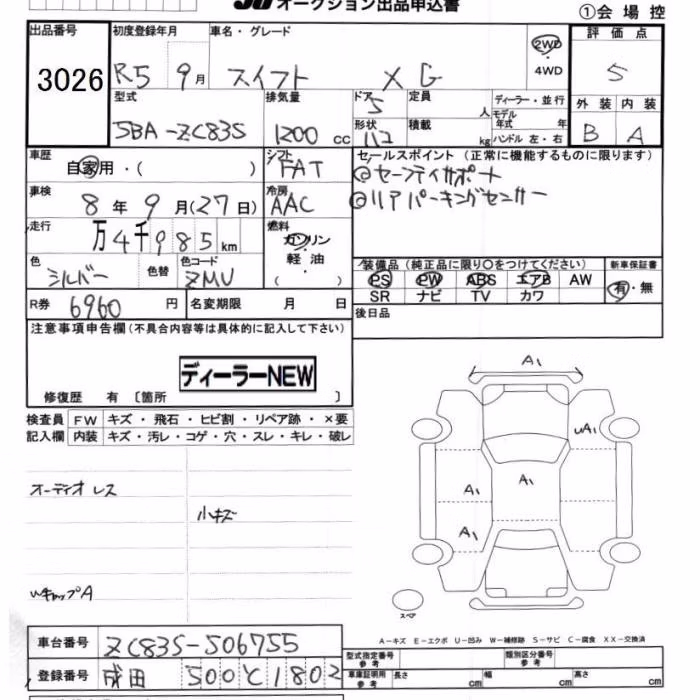 オークション出品申込書
①会場控
出品番号 初度登録年月 車名・グレード 評価点
3026 R5 9月 スイフト XG 2WD・4WD 5
型式 排気量 ドア 定員 人 ディーラー・並行 外装 内装
5BA-ZC83S 1200cc 5 形状 ハコ 積載 kg モデル年式 年 ハンドル 左・右 B A
車歴 シフト セールスポイント (正常に機能するものに限ります)
自家用・( ) FAT ◎セーフティサポート
車検 冷房 ◎リアパーキングセンサー
8年9月(27日) AAC
走行 燃料
万4千985km ガソリン・軽油・( )
色 色替 色コード 装備品 (純正品に限り○をつけてください) 新車保証書
シルバー ZMU PS PW ABS エアB AW 有・無
SR ナビ TV カワ
R券 6960円 名変期限 月 日 後日品
注意事項申告欄(不具合内容等は具体的に記入して下さい)
ディーラーNEW
修復歴 有 〔箇所 〕
検査員記入欄 FW キズ・飛石・ヒビ割・リペア跡・×要
内装 キズ・汚レ・コゲ・穴・スレ・キレ・破レ
A1
UA1
A1
A1
A1
オーディオレス
小キズ
WキャップA
スペア
A-キズ E-エクボ U-凹み W-補修跡 S-サビ C-腐食 XX-交換済
車台番号 ZC83S-506755 型式指定番号 参考 類別区分番号 参考
登録番号 成田 500 と 1802 車庫証明用 参考 長さ cm 幅 cm 高さ cm